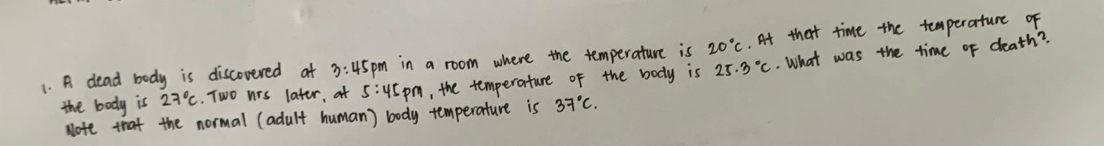 1. A dead body is discovered at 3:45pm in a room where the temperature is 20°C. At that time the temperature of
the body is 27°C. Two hrs later, at 5:45pm, the temperature of the body is 25.3°C. What was the time of death?
Note that the normal (adult human) body temperature is 37°C.